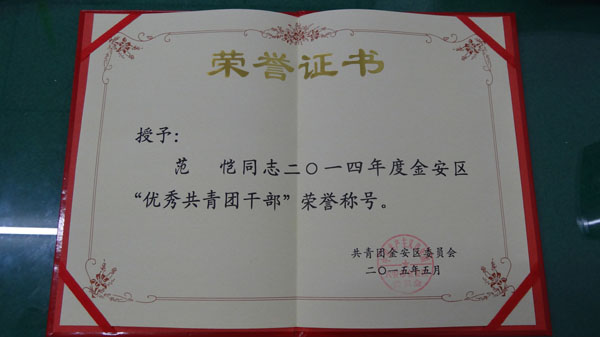 荣誉证书
授予：
范 恺同志二〇一四年度金安区
“优秀共青团干部”荣誉称号。
共青团金安区委员会
二〇一五年五月